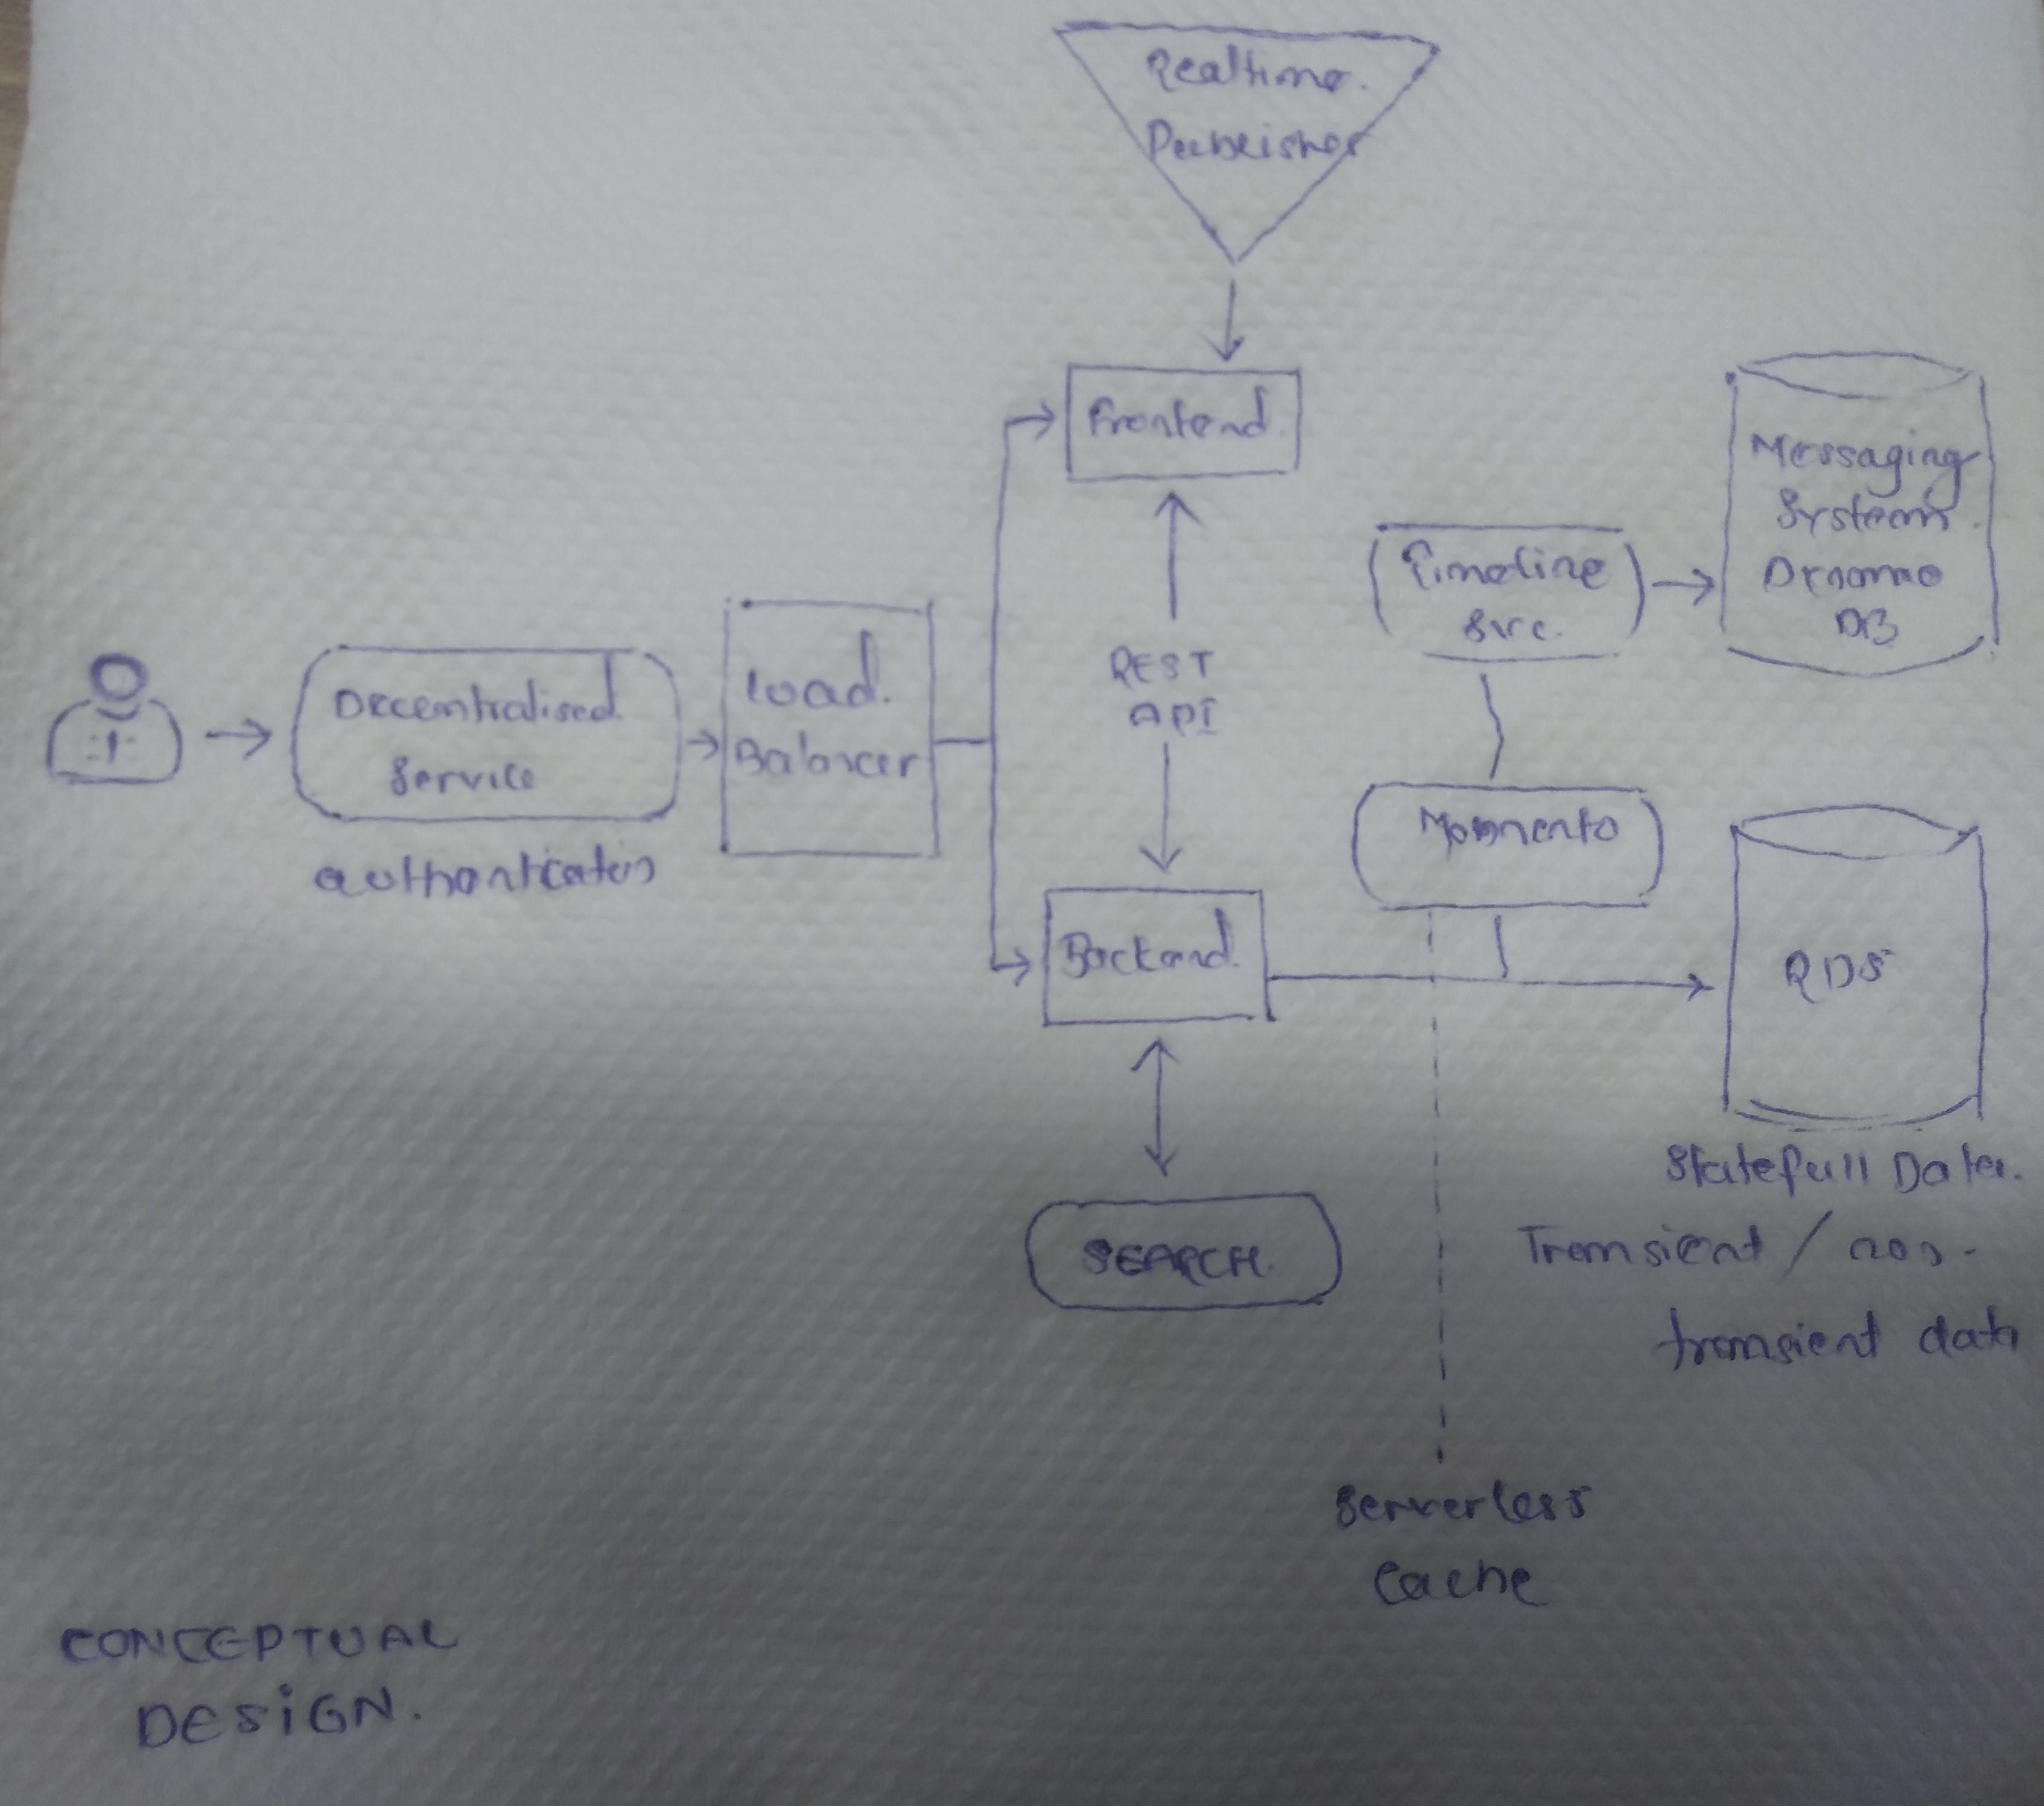 Realtime.
Publisher
Frontend.
Messaging
System.
Dynamo
DB
Timeline
Svc.
REST
API
Decentralised.
Service
authentication
Load.
Balancer
Momento
Backend.
RDS
Statefull Data.
Transient / non-
transient data
SEARCH.
Serverless
Cache
CONCEPTUAL
DESIGN.